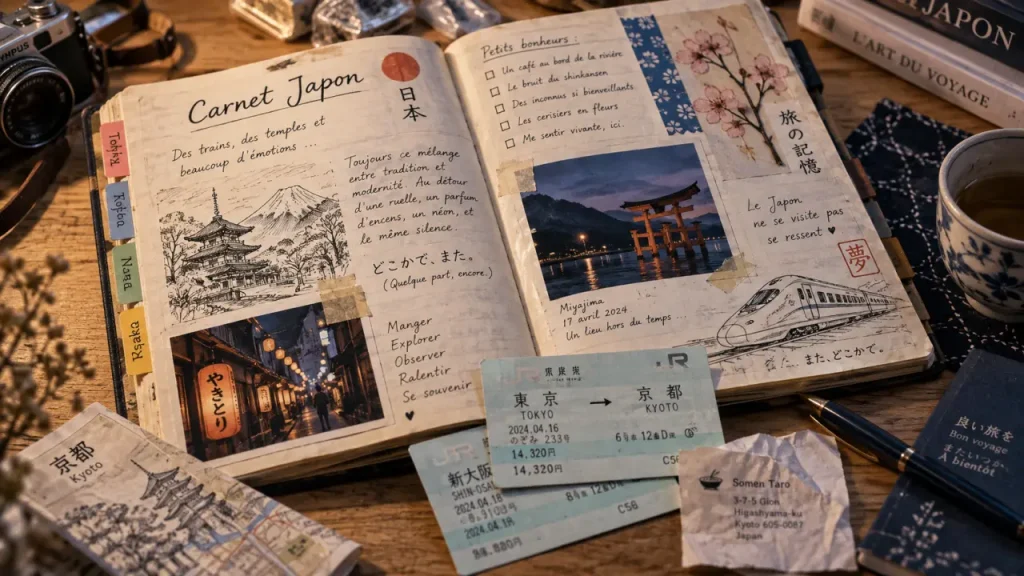 Carnet Japon
日本
Des trains, des temples et
beaucoup d'émotions ...
Toujours ce mélange
entre tradition et
modernité. Au détour
d'une ruelle, un parfum
d'encens, un néon, et
le même silence.
どこかで、また。
(Quelque part, encore.)
やきとり
Manger
Explorer
Observer
Ralentir
Se souvenir
♥
Petits bonheurs :
Un café au bord de la rivière
Le bruit du shinkansen
Des inconnus si bienveillants
Les cerisiers en fleurs
Me sentir vivante, ici.
旅の記憶
Le Japon
ne se visite pas
se ressent ♥
夢
Miyajima
17 avril 2024
Un lieu hors du temps ...
また、どこかで。
Nara
京都
Kyoto
JR
東京 → 京都
TOKYO KYOTO
2024.04.16
のぞみ 233号
14,320円
14,320円
新大阪
2024.04.18
C5B
Somen Taro
3-7-5 Gion
Higashiyama-ku
Kyoto 605-0087
Japan
良い旅を
Bon voyage
À bientôt
JAPON
L'ART DU VOYAGE